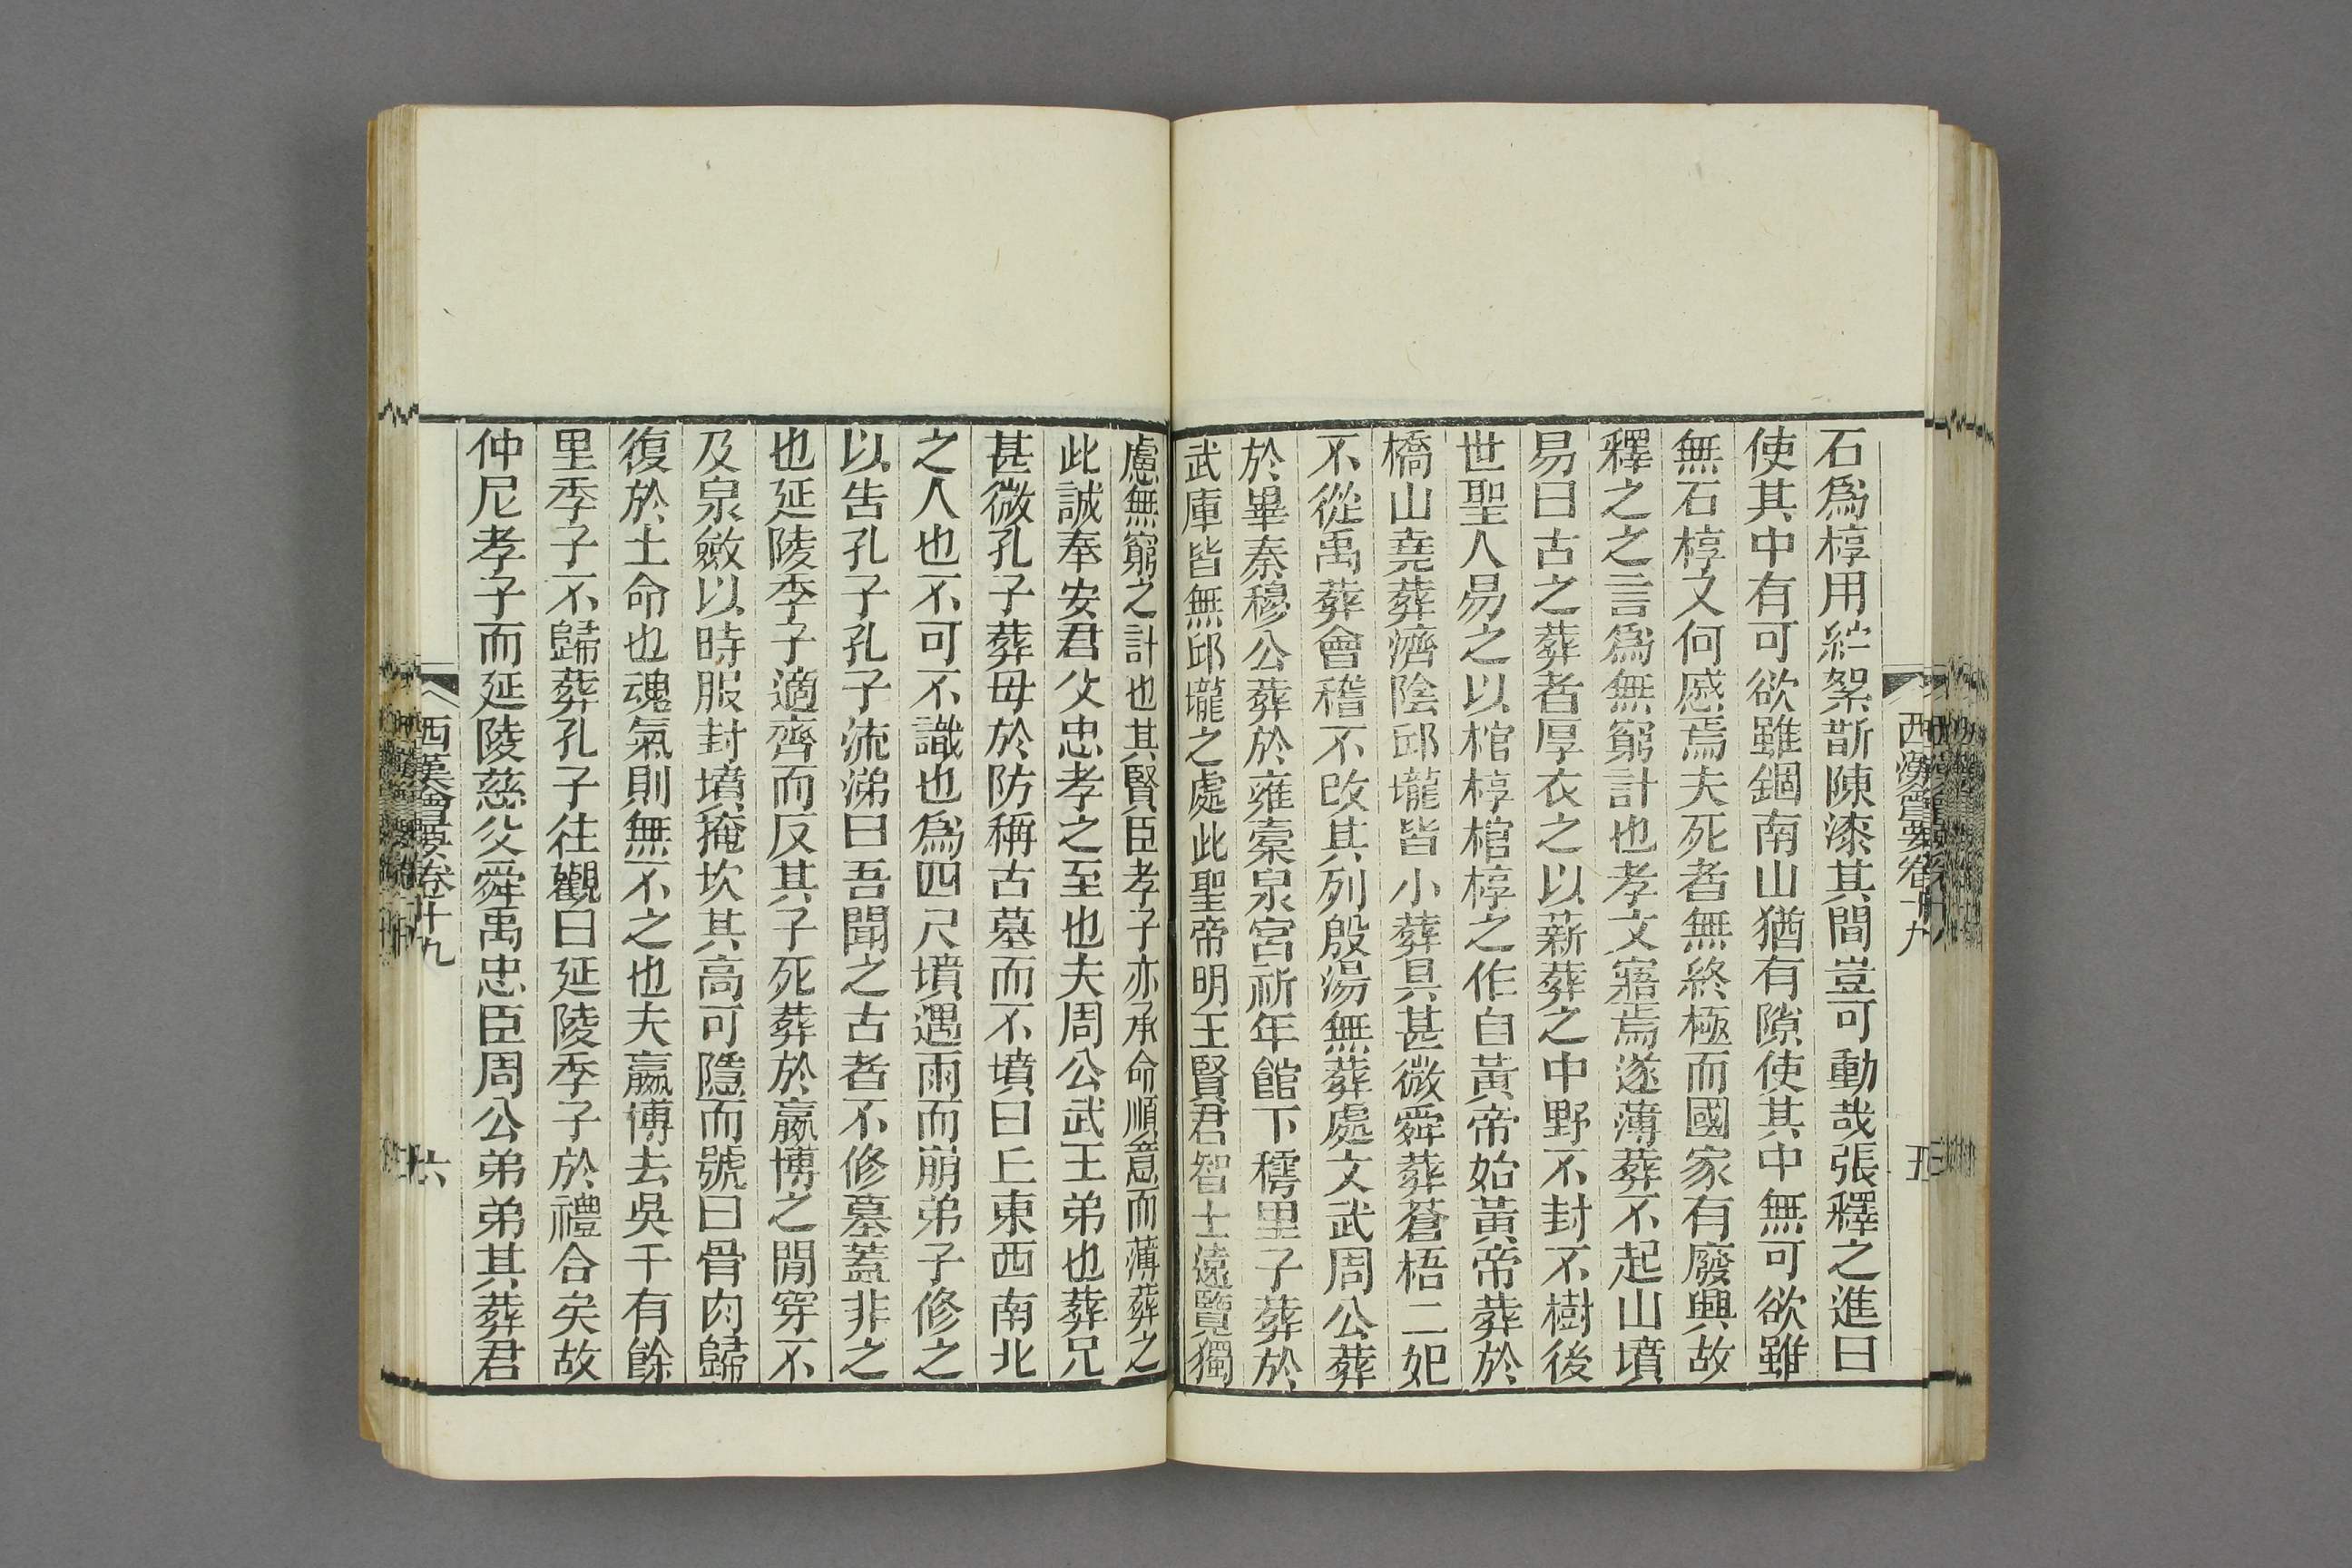 西漢會要卷十九
五
石爲椁用紵絮斮陳漆其間豈可動哉張釋之進曰
使其中有可欲雖錮南山猶有隙使其中無可欲雖
無石椁又何慼焉夫死者無終極而國家有廢興故
釋之之言爲無窮計也孝文寤焉遂薄葬不起山墳
易曰古之葬者厚衣之以薪葬之中野不封不樹後
世聖人易之以棺椁棺椁之作自黃帝始黃帝葬於
橋山堯葬濟陰邱壠皆小葬具甚微舜葬蒼梧二妃
不從禹葬會稽不改其列殷湯無葬處文武周公葬
於畢秦穆公葬於雍橐泉宮祈年館下樗里子葬於
武庫皆無邱壠之處此聖帝明王賢君智士遠覽獨
慮無窮之計也其賢臣孝子亦承命順意而薄葬之
此誠奉安君父忠孝之至也夫周公武王弟也葬兄
甚微孔子葬母於防稱古墓而不墳曰丘東西南北
之人也不可不識也爲四尺墳遇雨而崩弟子修之
以告孔子孔子流涕曰吾聞之古者不修墓蓋非之
也延陵季子適齊而反其子死葬於嬴博之閒穿不
及泉斂以時服封墳掩坎其高可隱而號曰骨肉歸
復於土命也魂氣則無不之也夫嬴博去吳千有餘
里季子不歸葬孔子往觀曰延陵季子於禮合矣故
仲尼孝子而延陵慈父舜禹忠臣周公弟弟其葬君
西漢會要卷十九
六